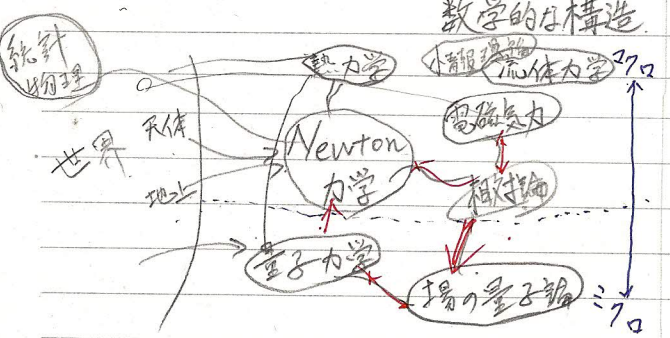 数学的な構造
統計
物理
熱力学
情報理論
流体力学
マクロ
電磁気力
天体
Newton
力学
世界
地上
相対論
量子力学
場の量子論
ミクロ